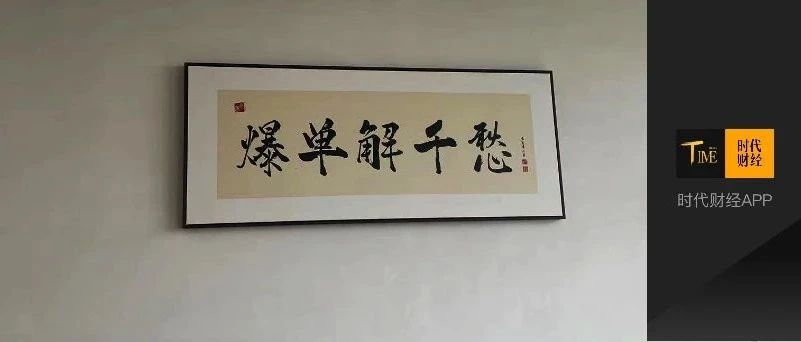 爆单解千愁
TIME
时代
财经
时代财经APP